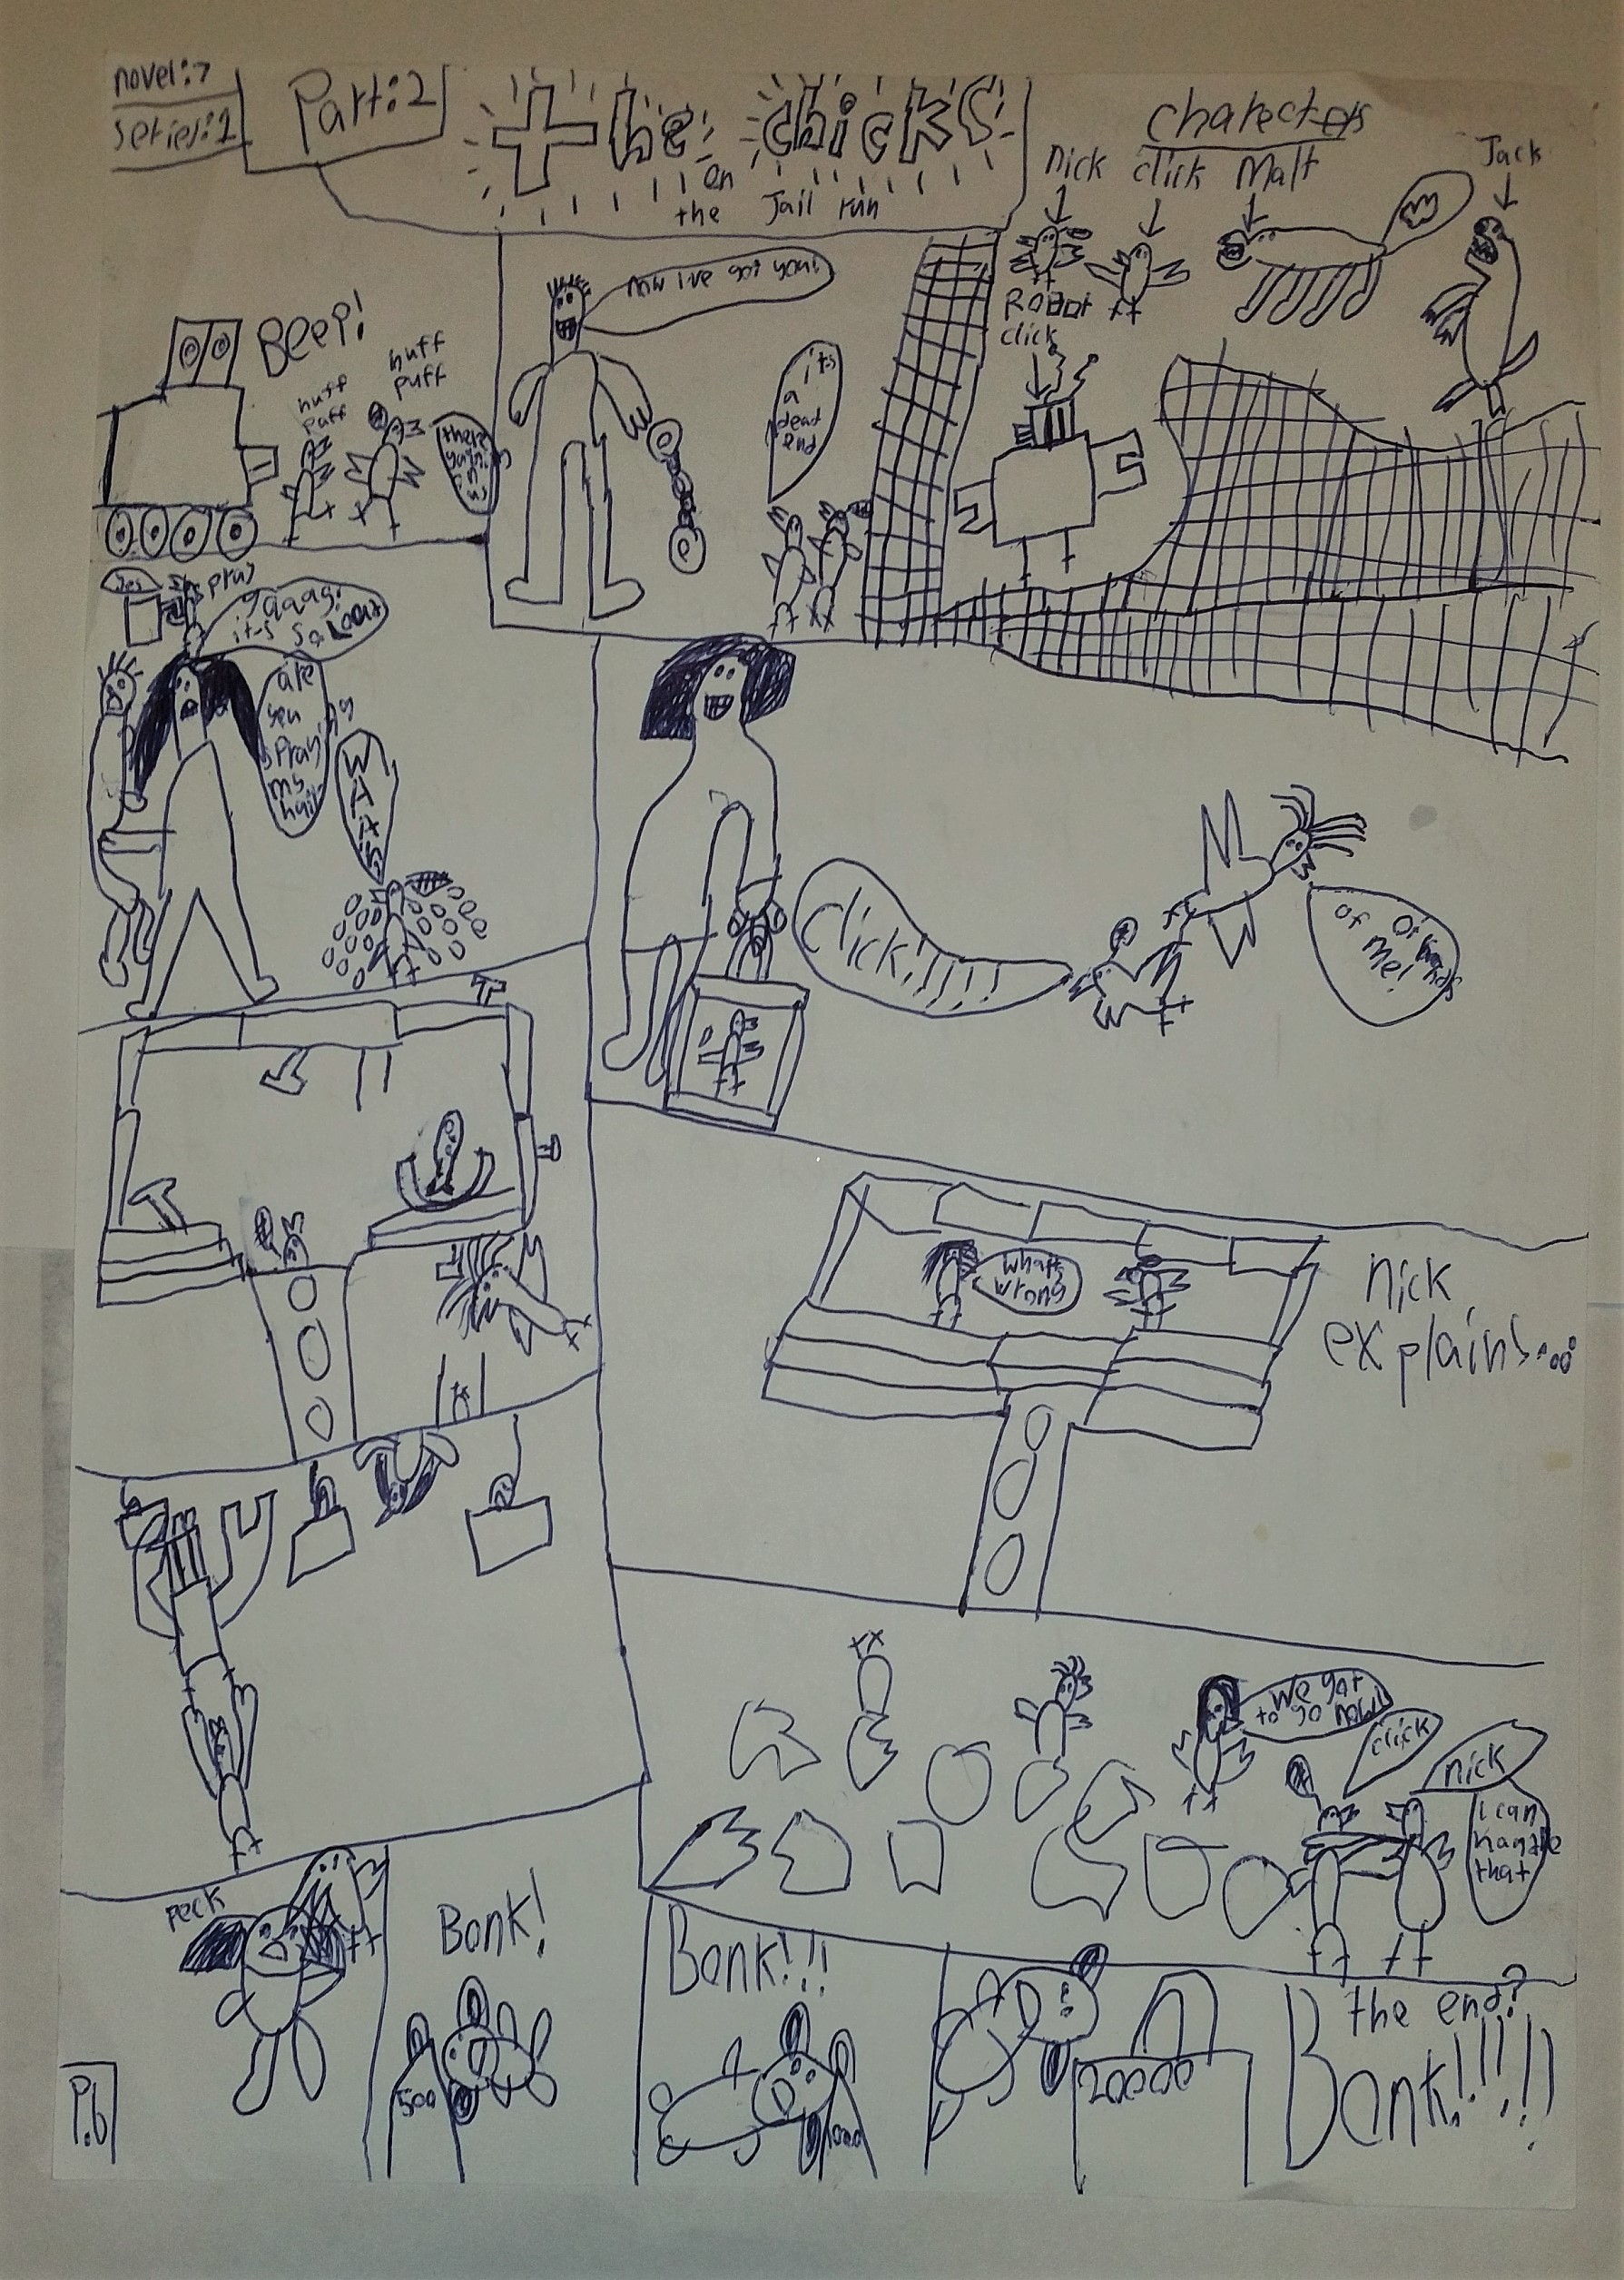 novel:7
series:1
Part:2
the chicks
on
the Jail run
charecters
nick click Malt
Jack
Robot
click
BEEP!
huff
puff
huff
puff
now I've got you!
it's
a
dead
end
yes
spray
it's
are
you
spraying
my
hair
Click!!!!!
Of
of me!
what's
wrong
nick
explains...
We got
to go now!
click
nick
i can
handle
that
Peck
Bonk!
500
Bonk!!!
20000
the end?
Bonk!!!!!!
P.6